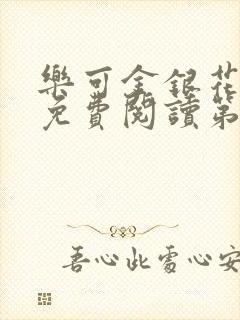 樂可金銀花
免費閱讀第
吾心此處心安